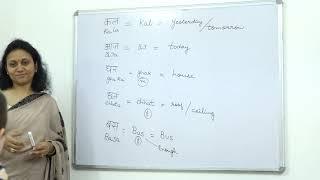 कल = Kal = yesterday/tomorrow
Kala
आज = aaj = today
घर = ghar = house
ghara (m)
छत = chhat = roof/ceiling
(f)
बस = Bas = Bus
Basa (f) enough